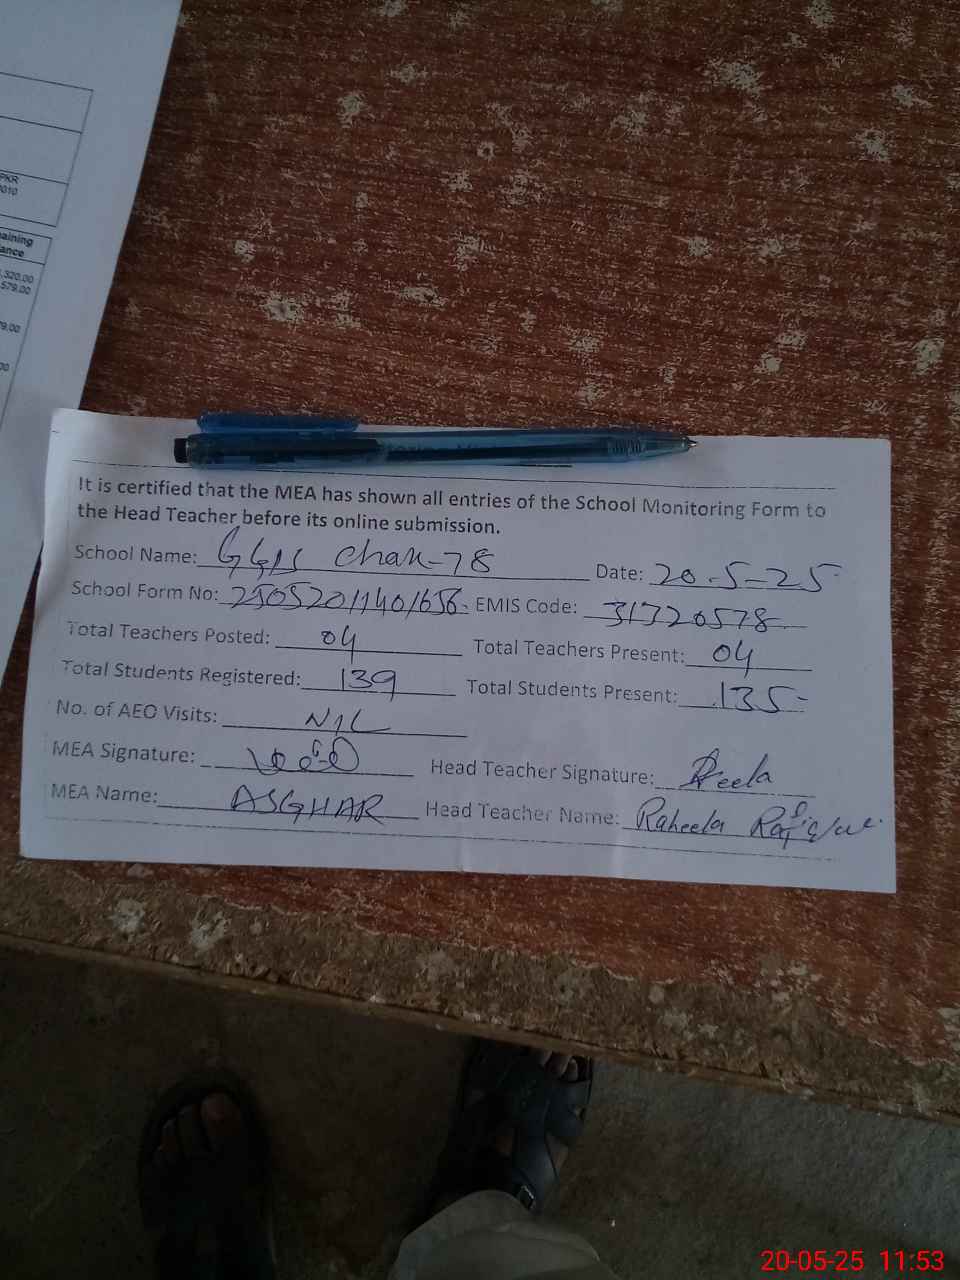 PKR
2010
aining
ance
,320.00
579.00
9.00
00
It is certified that the MEA has shown all entries of the School Monitoring Form to
the Head Teacher before its online submission.
School Name: Chak-78 Date: 20-5-25
School Form No: EMIS Code: 31320578
Total Teachers Posted: 04 Total Teachers Present: 04
Total Students Registered: 139 Total Students Present: 135
No. of AEO Visits: NIL
MEA Signature: Head Teacher Signature:
MEA Name: ASGHAR Head Teacher Name: Raheela
20-05-25 11:53